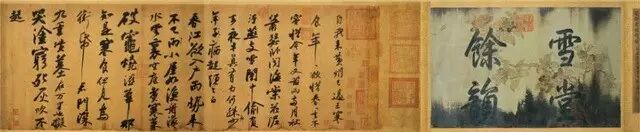 雪堂
餘韻
自我來黃州已過三寒
食年〻欲惜春〻去不
容惜今年又苦雨兩月秋
蕭瑟臥聞海棠花泥
汙燕支雪闇中偷負
去夜半真有力何殊少
年子病起頭已白
春江欲入戶雨勢來
不已雨小屋如漁舟濛〻
水雲裏空庖煮寒菜
破竈燒濕葦那
知是寒食但見烏
銜帋君門深
九重墳墓在万里也擬
哭塗窮死灰吹不
起